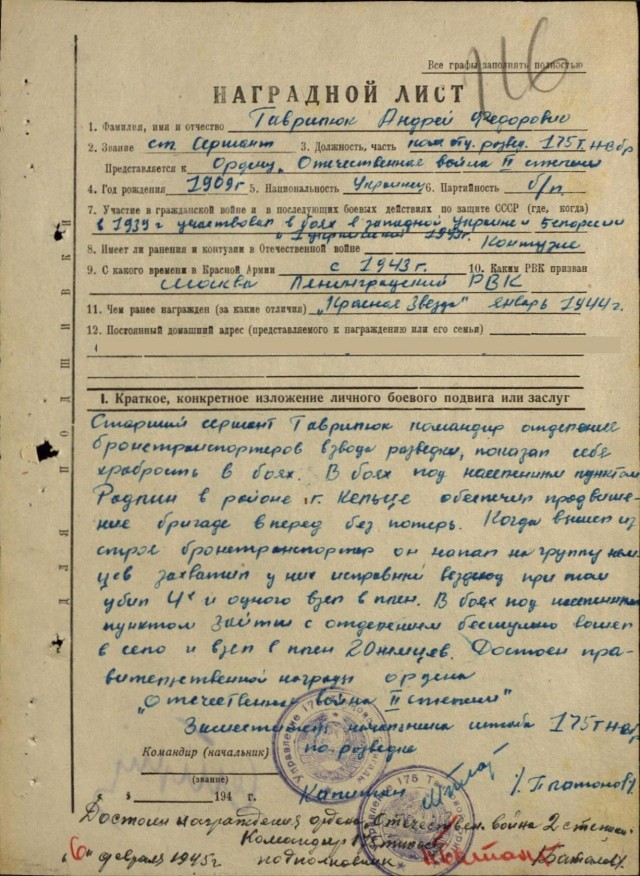 116
Все графы заполнять полностью
НАГРАДНОЙ ЛИСТ
1. Фамилия, имя и отчество Гаврилюк Андрей Федорович
2. Звание ст. Сержант 3. Должность, часть развед. 175 Т.Н Бр
Представляется к Ордену „Отечественная война II степени
4. Год рождения 1909г 5. Национальность Украинец 6. Партийность б/п
7. Участие в гражданской войне и в последующих боевых действиях по защите СССР (где, когда)
в 1939 г участвовал в боях в западной Украине и Белоруссии
8. Имеет ли ранения и контузии в Отечественной войне Контузие
9. С какого времени в Красной Армии с 1943 г. 10. Каким РВК призван
Москва Ленинградский РВК
11. Чем ранее награжден (за какие отличия) „Красная Звезда" январь 1944 г.
12. Постоянный домашний адрес (представляемого к награждению или его семьи)
ДЛЯ ПОДШИВКИ
I. Краткое, конкретное изложение личного боевого подвига или заслуг
Старший сержант Гаврилюк командир отделение
бронетранспортеров взвода разведки, показал себе
храбрость в боях. В боях под населеним пунктом
Радлин в районе г. Кельце обеспечил продвиже-
ние бригаде вперед без потерь. Когда вышел из
строе бронетранспортер он напал на группу нем-
цев захватил у них исправний вездеход при том
убил 4х и одного взел в плен. В боях под населеним
пунктом с отделением бесшумно вошел
в село и взел в плен 20 немцев. Достоен пра-
вительственной награды ордена
„Отечественная война II степени"
Заместитель начальника штаба 175 ТНбр
Командир (начальник) по разведке
(звание) Капитан /. Платонов/.
« » 194 г.
Достоин награждения ордена „Отечествен. война 2 степени"
Командир
"6" февраля 1945г подполковник